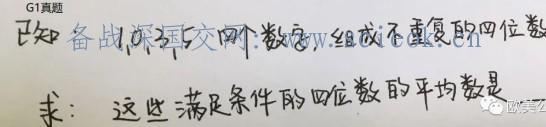 G1真题
已知 1,0,3,5 四个数字,组成不重复的四位数
备战深国交网: www.scieok.cn
求: 这些满足条件的四位数的平均数是
欧美公